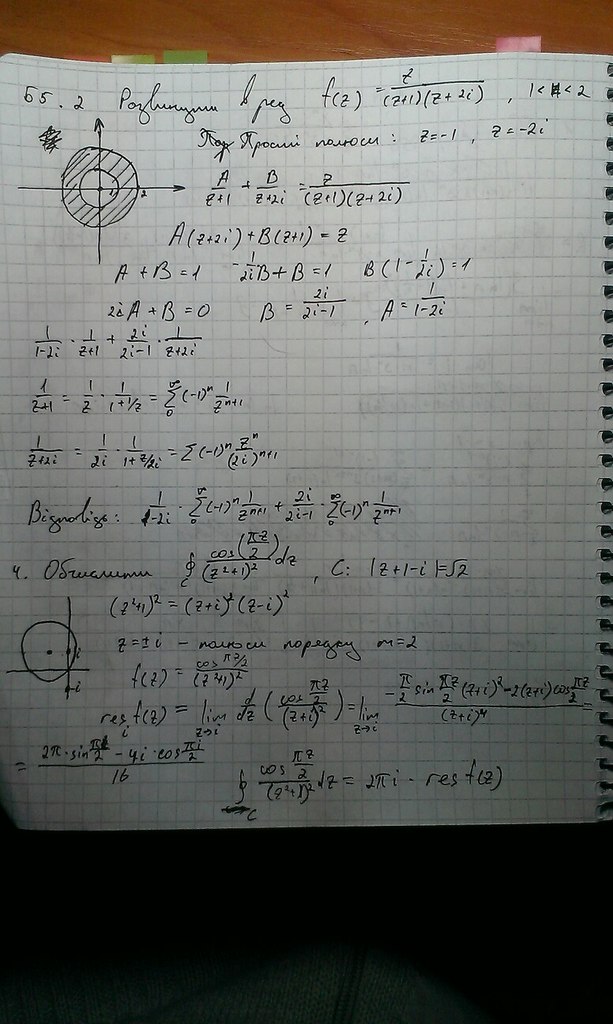 Б5. 2 Розвинути в ряд f(z) = z/((z+1)(z+2i)), 1<|z|<2
Прості полюси: z=-1, z=-2i
A/(z+1) + B/(z+2i) = z/((z+1)(z+2i))
2
A(z+2i)+B(z+1) = z
A+B=1 -1/(2i)B+B=1 B(1-1/(2i))=1
2iA+B=0 B=2i/(2i-1), A=1/(1-2i)
1/(1-2i) · 1/(z+1) + 2i/(2i-1) · 1/(z+2i)
1/(z+1) = 1/z · 1/(1+1/z) = ∑₀^∞ (-1)ⁿ 1/z^(n+1)
1/(z+2i) = 1/(2i) · 1/(1+z/2i) = ∑(-1)ⁿ zⁿ/(2i)^(n+1)
Відповідь: 1/(1-2i) · ∑₀^∞ (-1)ⁿ 1/z^(n+1) + 2i/(2i-1) · ∑₀^∞ (-1)ⁿ 1/z^(n+1)
4. Обчислити ∮_C cos(πz/2)/(z²+1)² dz, C: |z+1-i|=√2
(z²+1)² = (z+i)²(z-i)²
z=±i – полюси порядку m=2
i
-i
f(z) = cos πz/2/(z²+1)²
res_i f(z) = lim_{z→i} d/dz (cos πz/2/(z+i)²) = lim_{z→i} (-π/2 sin πz/2 (z+i)² - 2(z+i)cos πz/2)/(z+i)⁴ =
= (2π·sin πi/2 - 4i·cos πi/2)/16
∮_C cos πz/2/(z²+1)² dz = 2πi · res f(z)